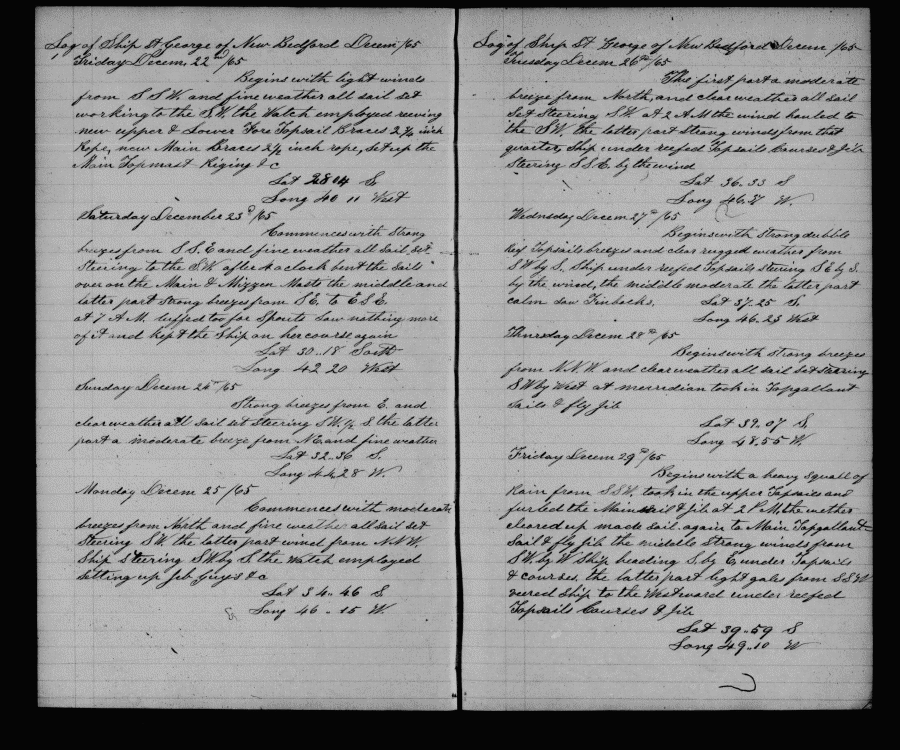 Log of Ship St George of New Bedford Decem /65
Friday Decem, 22nd /65
Begins with light winds
from S S W. and fine weather all sail set
working to the S. W. the Watch employed reeving
new upper & Lower Fore Topsail Braces 2 1/4 inch
Rope, new Main Braces 2 1/2 inch rope, set up the
Main Topmast Riging & c
Lat 28 14 S.
Long 40 11 West
Saturday December 23d /65
Commences with Strong
breezes from S S. E and fine weather all sail set
Steering to the S. W. after 4 o clock bent the Sails
over on the Main & Mizzen Masts the middle and
latter part strong breezes from S E. to E S E.
at 7 A. M. luffed too for Spouts Saw nothing more
of it and kept the Ship on her course again
Lat 30..18 South
Long 42 20 West
Sunday Decem 24th /65
Strong breezes from E. and
clear weather all sail set Steering S W. 1/2 S. the latter
part a moderate breeze from N E and fine weather
Lat 32..36 S.
Long 44,28 W.
Monday Decem 25 /65
Commences with moderate
breezes from North and fine weather all sail set
Steering S W. the latter part wind from N. N W.
Ship Steering S W. by S. the Watch employed
setting up Jib Guys & c
Lat 34..46 S
Long 46..15 W
Log of Ship St George of New Bedford Decem /65
Tuesday Decem 26th /65
This first part a moderate
breeze from North, and clear weather all sail
Set Steering S W. at 2 A M the wind hauled to
the S W. the latter part Strong winds from that
quarter, Ship under reefed Topsails Courses & Jib
Steering S S. E. by the wind
Lat 36..33 S
Long 46. W
Wednsday Decem 27th /65
Begins with Strong dubble
Reef Topsails breezes and clear rugged weather from
S W by S. Ship under reefed Topsails Steering S E by S.
by the wind, the middle moderate the latter part
calm saw Finbacks. Lat 37..25 S.
Long 46.23 West
Thursday Decem 28th /65
Begins with Strong breezes
from N. N W. and clear weather all sail set Steering
S W by West at merridian took in Topgallant
Sails & fly Jib
Lat 39.07 S.
Long 48.55 W
Friday Decem 29th /65
Begins with a heavy Squall of
Rain from S. S W. took in the upper Topsails and
furled the Mainsail & Jib at 2 P. M. the wether
cleared up made sail again to Main Topgallant
Sail & fly Jib the middle Strong winds from
S W. by W Ship heading S. by E. under Topsails
& courses, the latter part light gales from S S W
veered Ship to the Westward under reefed
Topsails Courses & Jib
Lat 39..59 S
Long 49..10 W